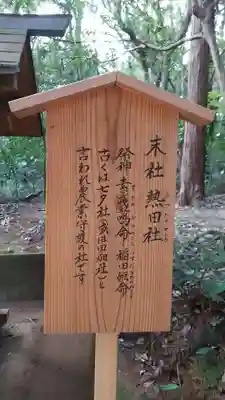 末社 熱田社
祭神 素戔嗚命 稲田姫命
古くは七夕社(或は田畑社)と
言われ農業守護の社です